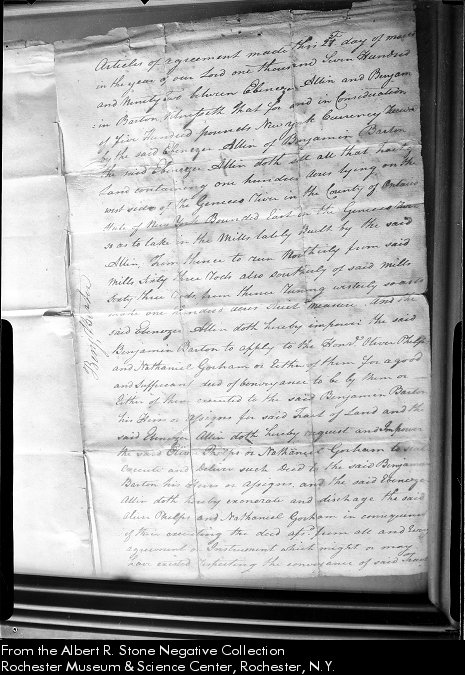 Articles of agreement made this 28 day of march
in the year of our Lord one thousand Seven Hundred
and Ninety two between Ebenezer Allin and Benjam
:in Barton Witnesseth That for and in Consideration
of Five Hundred pounds New york Currency
by the said Ebenezer Allin of Benjamin Barton
the said Ebenezer Allin doth sell all that Tract of
Land containing one hundred acres lying on the
west side of the Genecees River in the County of Ontario
State of New York Bounded East on the Genecees River
so as to take in the Mills lately Built by the said
Allin, From thence to run Northerly from said
Mills Sixty three Rods also southerly of said mills
Sixty three Rods, from thence Turning westerly so as to
one hundred acres Strict measure And the
said Ebenezer Allin doth hereby impower the said
Benjamin Barton to apply to The Honrl. Oliver Phelps
and Nathaniel Gorham or Either of them for a good
and Sufficient deed of Conveyance to be by them or
Either of them executed to the said Benjamin Barton
his Heirs or assigns for said Tract of Land and the
said Ebenezer Allin doth hereby request and Impower
the said Phelps or Nathaniel Gorham to
Execute and deliver such Deed to the said Benjamin
Barton his Heirs or assigns, and the said Ebenezer
Allin doth hereby exonerate and discharge the said
Oliver Phelps and Nathaniel Gorham in consequence
of their executing the deed afsd. from all and Every
agreement or Instrument which might or may
have existed respecting the conveyance of said Tract
From the Albert R. Stone Negative Collection
Rochester Museum & Science Center, Rochester, N.Y.